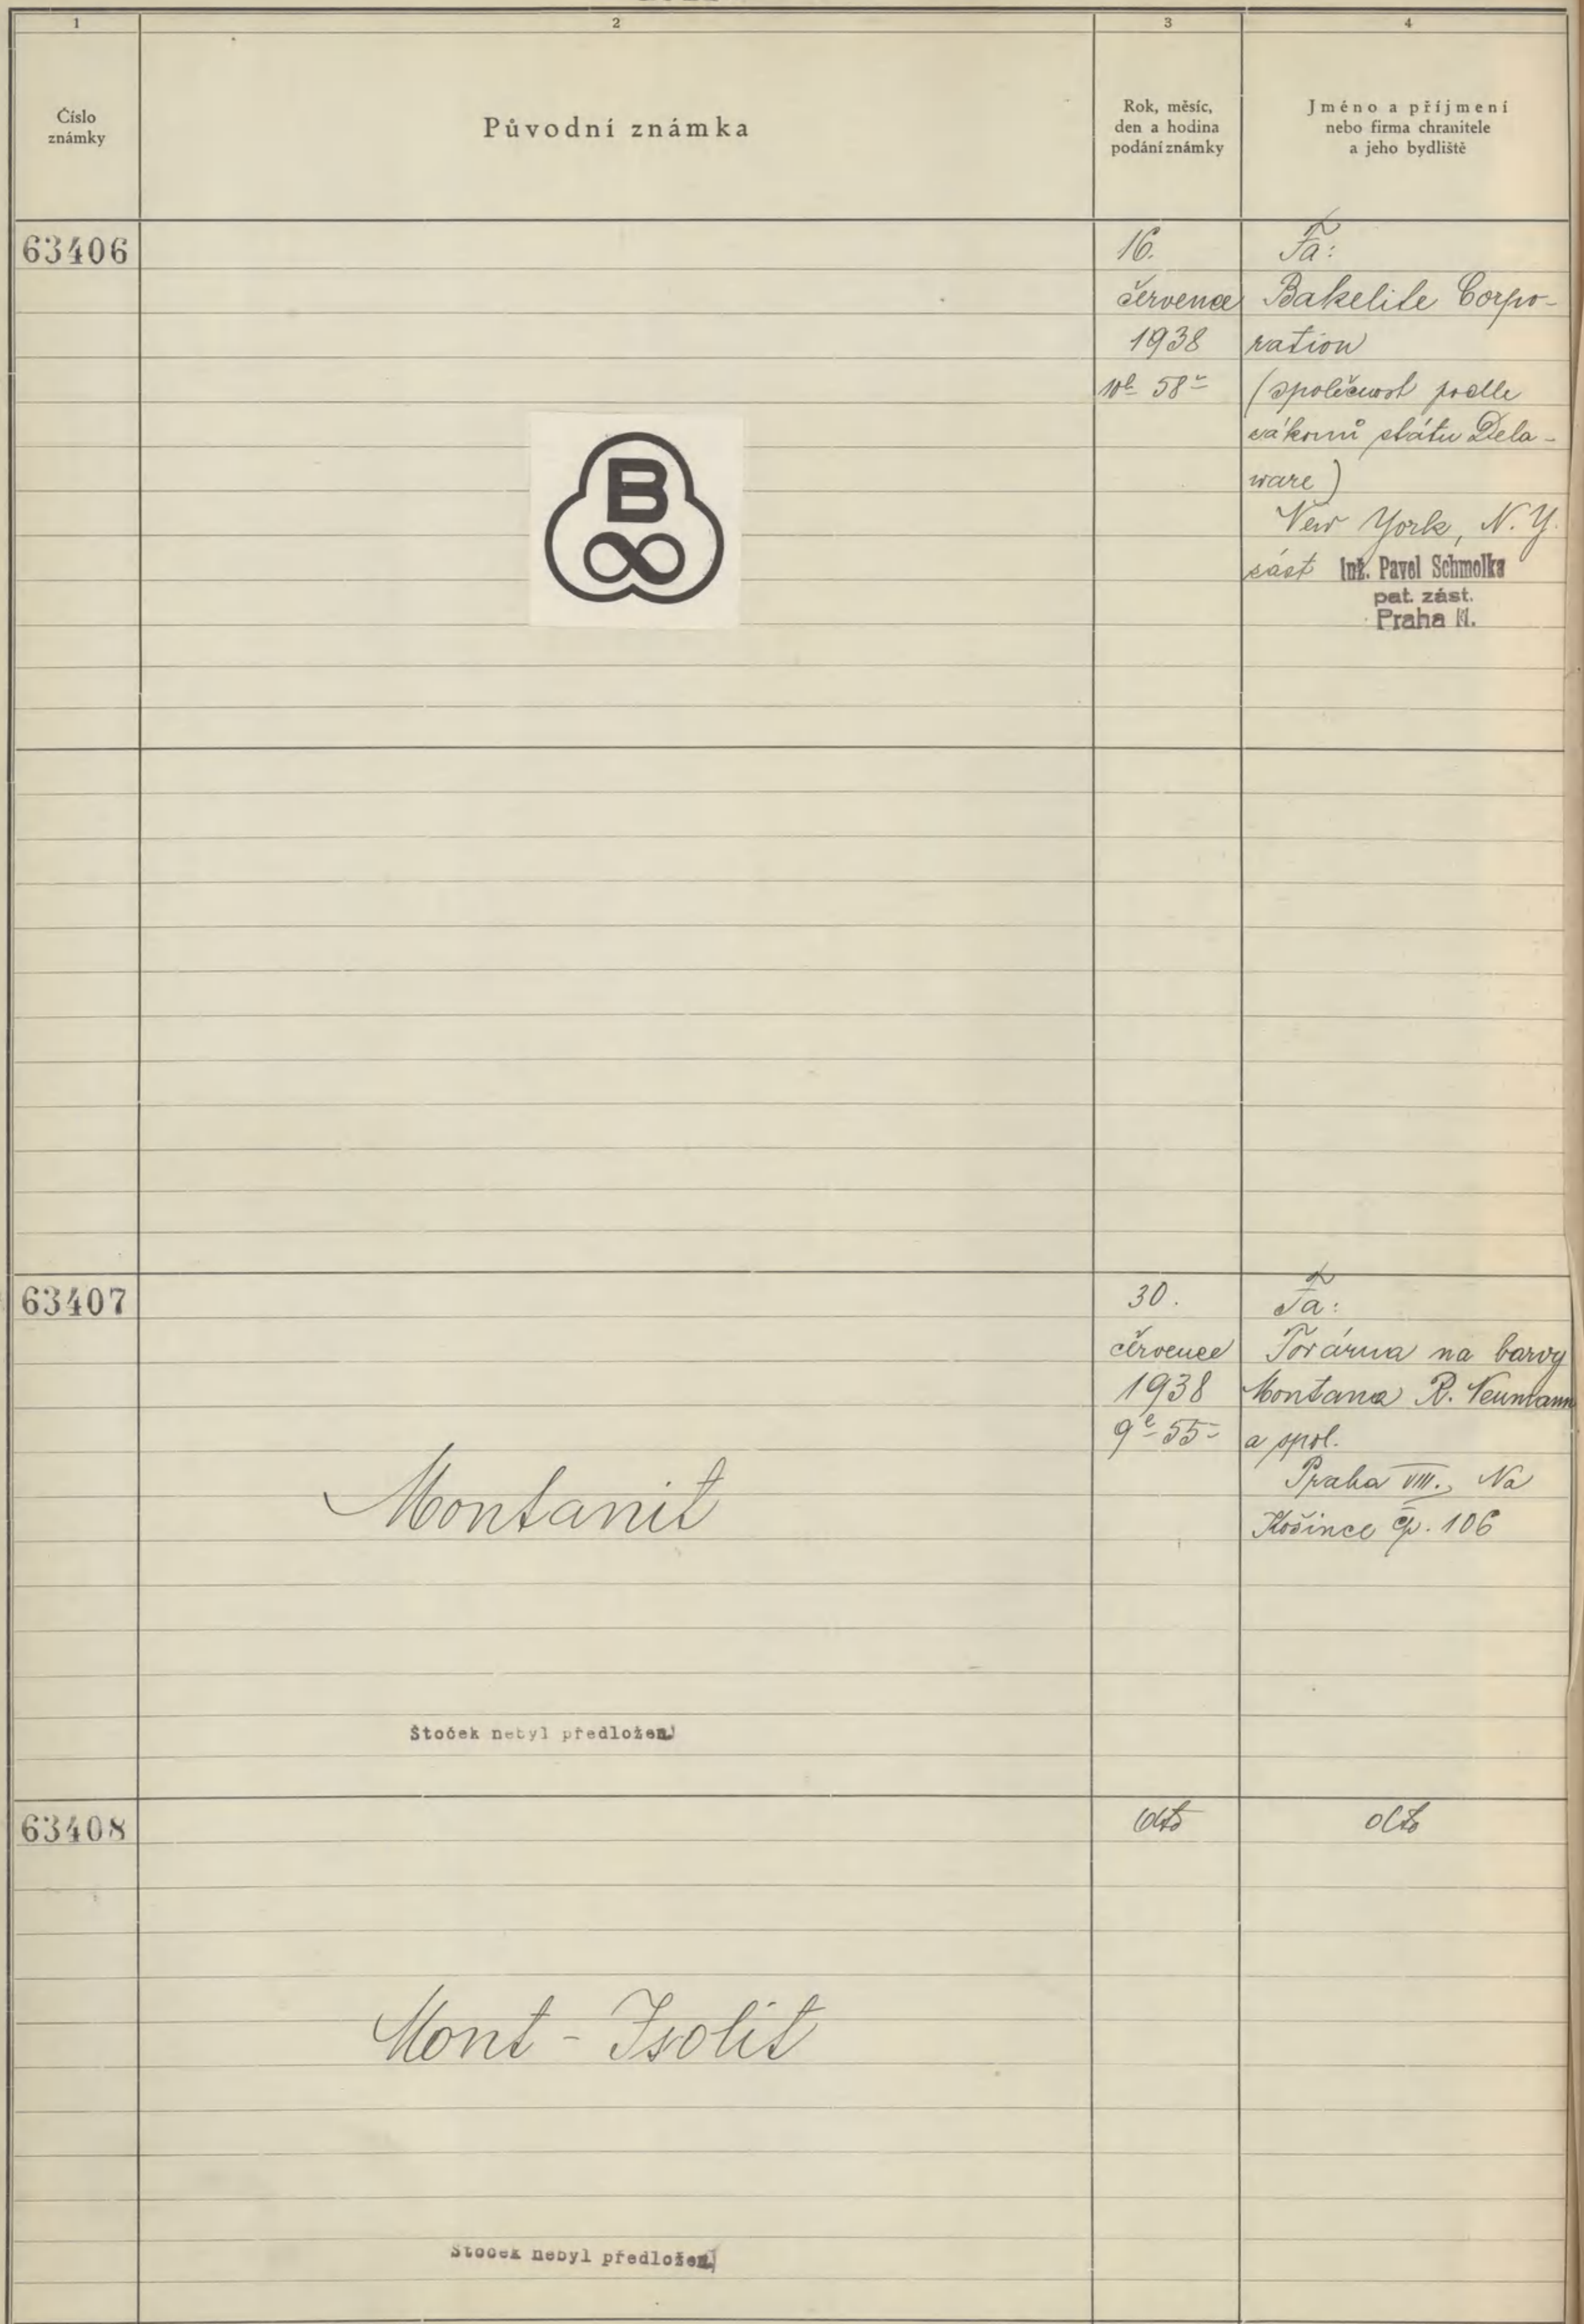 1 2 3 4
Číslo
známky
Původní známka
Rok, měsíc,
den a hodina
podání známky
Jméno a příjmení
nebo firma chranitele
a jeho bydliště
63406
16.
července
1938
10h 58
Fa:
Bakelite Corpo-
ration
(společnost podle
zákonů státu Dela-
ware)
New York, N.Y.
zást Inž. Pavel Schmolka
pat. zást.
Praha II.
B
∞
63407
30.
července
1938
9h 55
Fa:
Továrna na barvy
Montana R. Neumann
a spol.
Praha VIII., Na
Košince čp. 106
Montanit
Štoček nebyl předložen!
63408
dto
dto
Mont - Isolit
Štoček nebyl předložen!